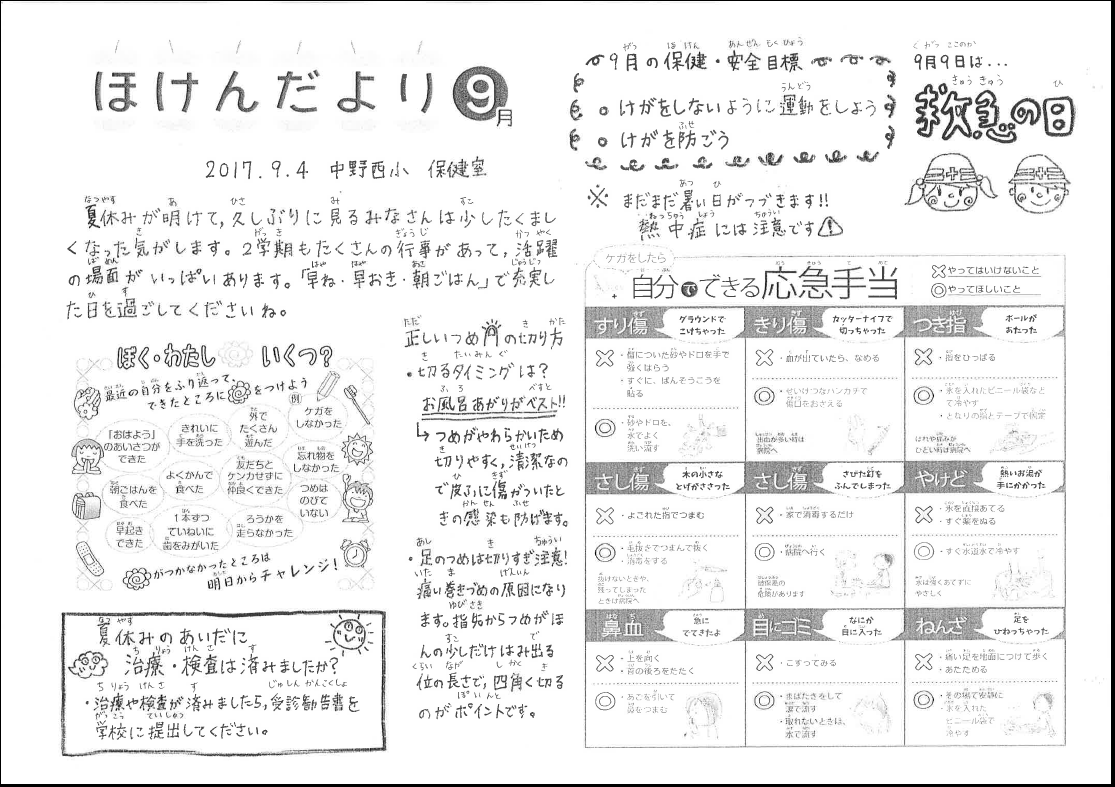 ほけんだより 9月
2017.9.4 中野西小 保健室
夏休みが明けて,久しぶりに見るみなさんは少したくまし
くなった気がします。2学期もたくさんの行事があって,活躍
の場面がいっぱいあります。「早ね・早おき・朝ごはん」で充実し
た日を過ごしてくださいね。
ぼく・わたし いくつ?
最近の自分をふり返って、
できたところに をつけよう
例
「おはよう」
のあいさつが
できた
きれいに
手を洗った
外で
たくさん
遊んだ
ケガを
しなかった
朝ごはんを
食べた
よくかんで
食べた
友だちと
ケンカせずに
仲良くできた
忘れ物を
しなかった
つめは
のびて
いない
早起き
できた
1本ずつ
ていねいに
歯をみがいた
ろうかを
走らなかった
がつかなかったところは
明日からチャレンジ!
夏休みのあいだに
治療・検査は済みましたか?
・治療や検査が済みましたら,受診勧告書を
学校に提出してください。
正しいつめの切り方
・切るタイミングは?
お風呂あがりがベスト!!
↳つめがやわらかいため
切りやすく,清潔なの
で皮ふに傷がついたと
きの感染も防げます。
・足のつめは切りすぎ注意!
痛い巻きづめの原因になり
ます。指先からつめがほ
んの少しだけはみ出る
位の長さで,四角く切る
のがポイントです。
9月の保健・安全目標
○ けがをしないように運動をしよう
○ けがを防ごう
9月9日は...
救急の日
※ まだまだ暑い日がつづきます!!
熱中症には注意です
ケガをしたら
自分でできる応急手当
×やってはいけないこと
◎やってほしいこと
すり傷
グラウンドで
こけちゃった
×
・傷についた砂やドロを手で
強くはらう
・すぐに、ばんそうこうを
貼る
◎
・砂やドロを、
水でよく
洗い流す
きり傷
カッターナイフで
切っちゃった
×
・血が出ていたら、なめる
◎
・せいけつなハンカチで
傷口をおさえる
出血が多い時は
病院へ
つき指
ボールが
あたった
×
・指をひっぱる
◎
・氷を入れたビニール袋など
で冷やす
・となりの指とテープで固定
はれや痛みが
ひどい時は病院へ
さし傷
木の小さな
とげがささった
×
・よごれた指でつまむ
◎
・毛抜きでつまんで抜く
・消毒をする
抜けないときや、
残ってしまった
ときは病院へ
さし傷
さびた釘を
ふんでしまった
×
・家で消毒するだけ
◎
・病院へ行く
破傷風の
危険があります
やけど
熱いお湯が
手にかかった
×
・氷を直接あてる
・すぐ薬をぬる
◎
・すぐ水道水で冷やす
水は強くあてずに
やさしく
鼻血
急に
でてきたよ
×
・上を向く
・首の後ろをたたく
◎
・あごを引いて
鼻をつまむ
目にゴミ
なにか
目に入った
×
・こすってみる
◎
・まばたきをして
涙で流す
・取れないときは、
水で流す
ねんざ
足を
ひねっちゃった
×
・痛い足を地面につけて歩く
・あたためる
◎
・その場で安静に
・氷を入れた
ビニール袋で
冷やす